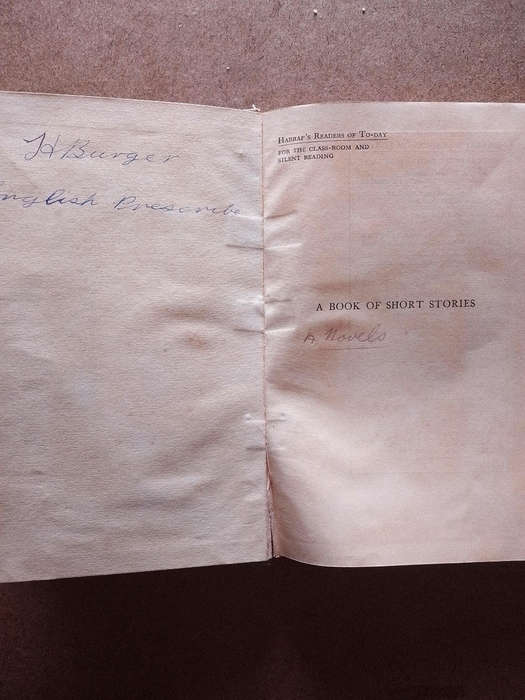 JH Burger
English Prescribe
HARRAP'S READERS OF TO-DAY
FOR THE CLASS-ROOM AND
SILENT READING
A BOOK OF SHORT STORIES
A Novels